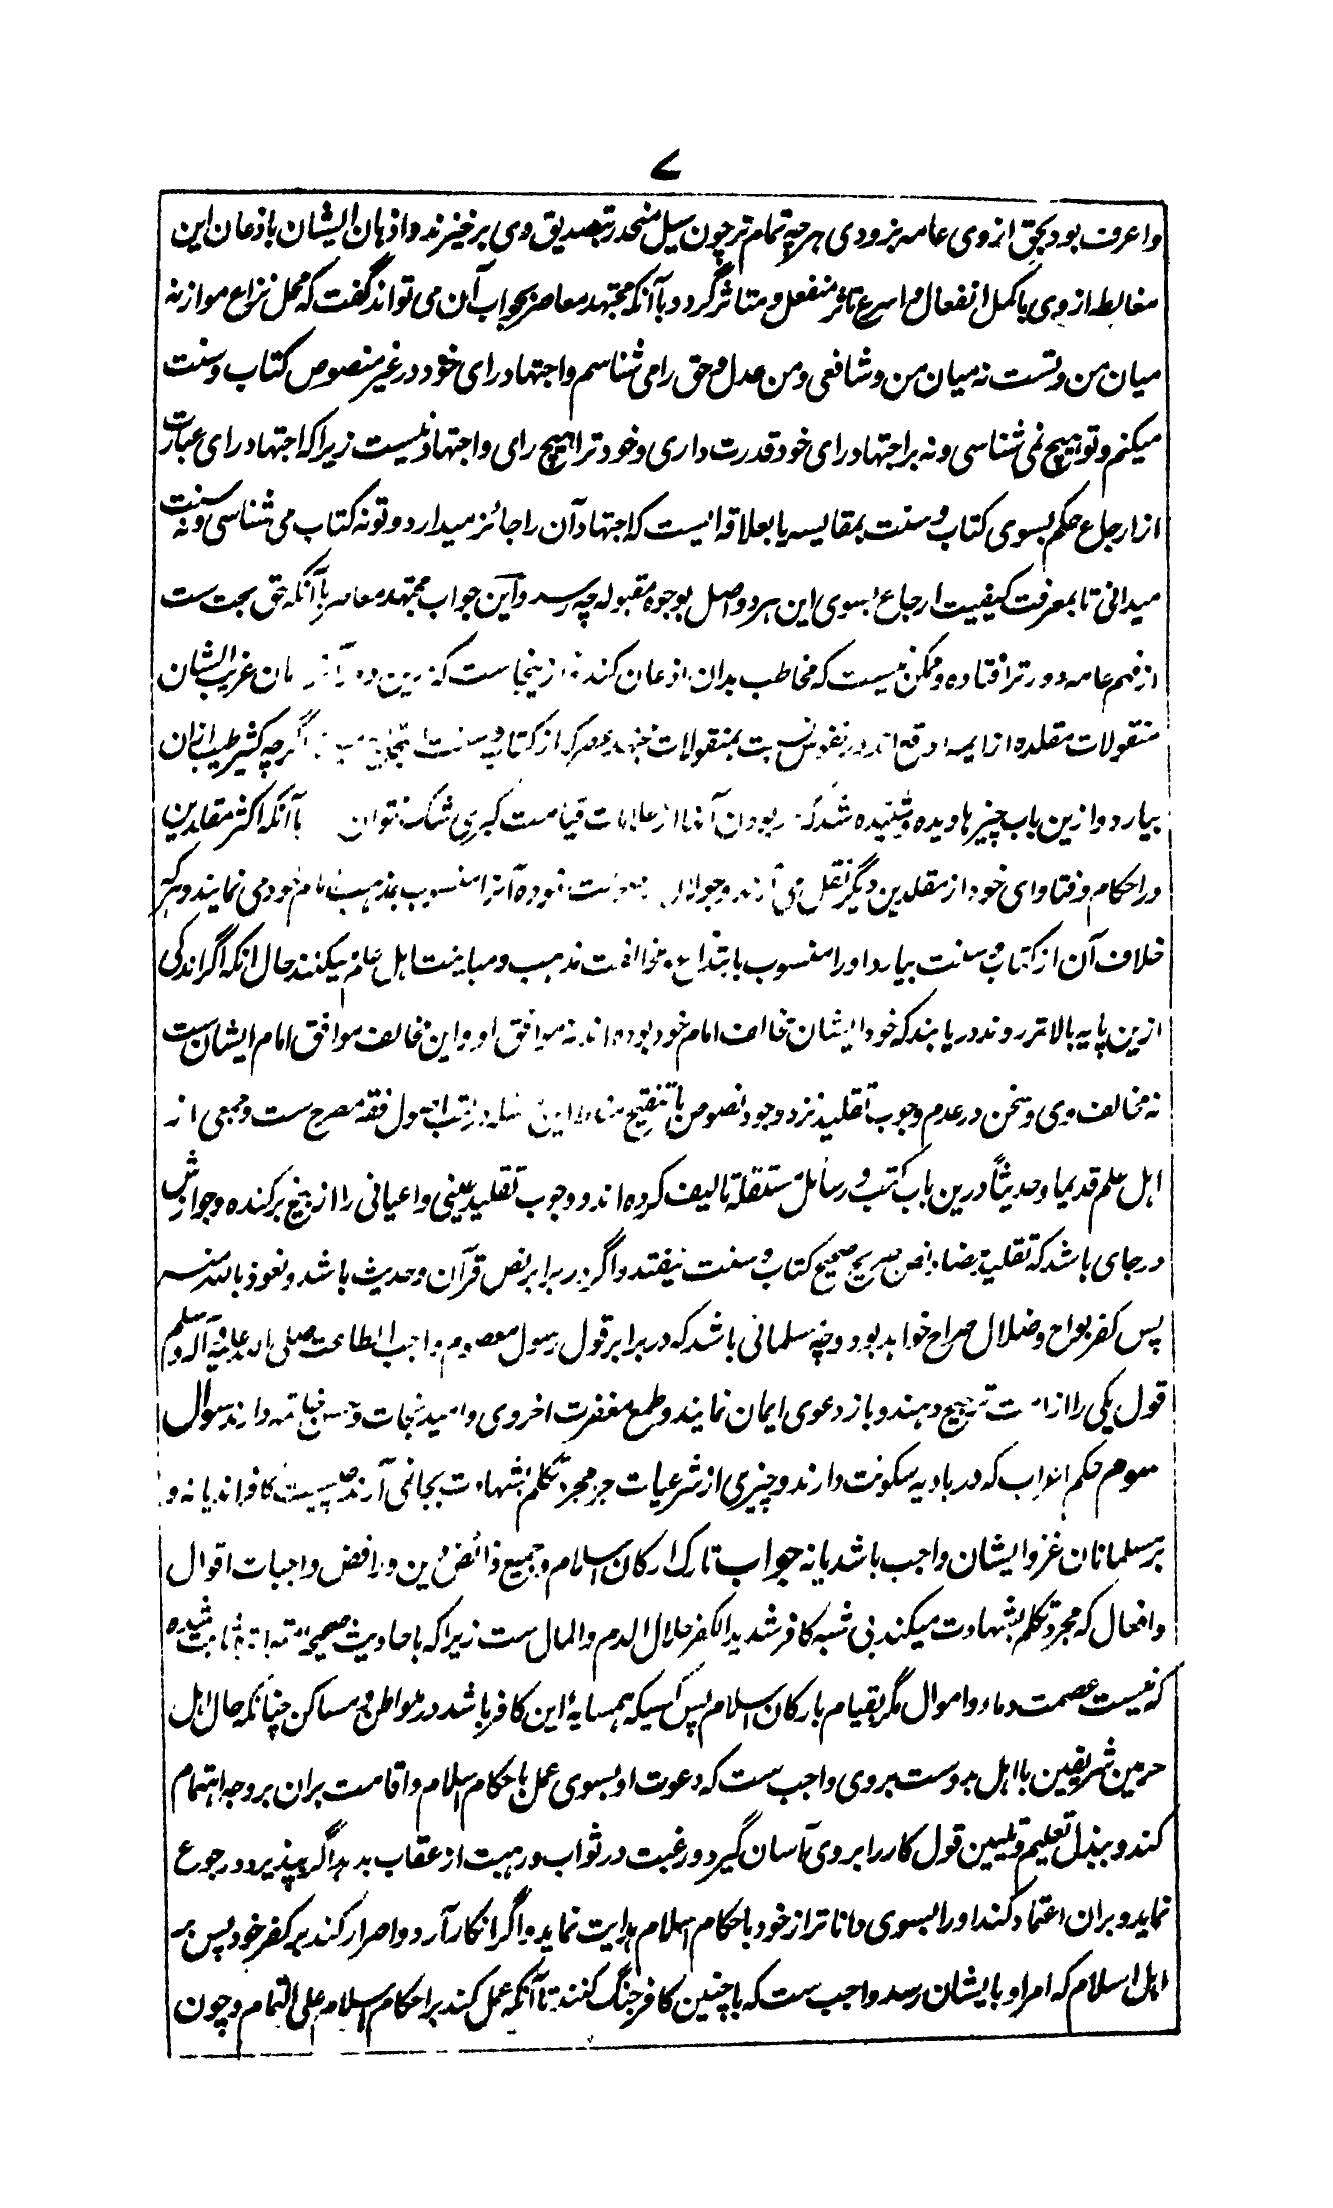 ۷
واعرف بود بحق ازوی عامه بزودی هرچه تمام تر چون سیل منحدر بتصدیق وی برخیزند واذهان ایشان باذعان این
مغالطه ازوی باکمل انفعال واسرع تاثر منفعل ومتاثر گردد باآنکه مجتهد معاصر بجواب آن می تواند گفت که محل نزاع موازنه
میان من وتست نه میان من وشافعی ومن عدل وحق رامی شناسم واجتهاد رای خود در غیر منصوص کتاب وسنت
میکنم وتو هیچ نمی شناسی ونه براجتهاد رای خود قدرت داری وخود ترا هیچ رای واجتهاد نیست زیراکه اجتهاد رای عبارت
از ارجاع حکم بسوی کتاب وسنت بمقایسه یا بعلاقه ایست که اجتهاد آن را جائز میدارد وتو نه کتاب می شناسی ونه سنت
میدانی تا بمعرفت کیفیت ارجاع بسوی این هر دو اصل بوجوه مقبوله چه رسد واین جواب مجتهد معاصر باآنکه حق بحت ست
از فهم عامه دورتر افتاده وممکن نیست که مخاطب بدان اذعان کند ازینجاست که درین غریب الشان
منقولات مقلده از ایمه اوقع اند در نفوس نسبت بمنقولات مجتهد عصر که از کتاب وسنت اگرچه کثیر طیب ازان
بیارد وازین باب چیزها دیده وشنیده شد که بودن آنها از علامات قیامت کبری شک نتوان باآنکه اکثر مقلدین
در احکام وفتاوای خود از مقلدین دیگر نقل می آرند نموده آنرا منسوب بمذهب امام خود می نمایند وهرکه
خلاف آن از کتاب وسنت بیارد اورا منسوب بابتداع ومخالفت مذهب ومباینت اهل علم میکنند حال انکه اگر اندکی
ازین پایه بالاتر روند دریابند که خود ایشان مخالف امام خود بوده اند نه موافق او واین مخالف موافق امام ایشان ست
نه مخالف وی وسخن در عدم وجوب تقلید نزد وجود نصوص با تنقیح این مسله در کتب اصول فقه مصرح ست وجمعی از
اهل علم قدیما وحدیثاً درین باب کتب ورسائل مستقله تالیف کرده اند ووجوب تقلید عینی واعیانی را از بیخ برکنده وجوازش
درجای باشد که تقلید مضاد نص صریح صحیح کتاب وسنت نیفتد واگر در برابر نص قرآن وحدیث باشد ونعوذ بالله منه
پس کفر بواح وضلال صراح خواهد بود وچه مسلمانی باشد که در برابر قول رسول معصوم واجب الطاعت صلی الله علیه وآله وسلم
قول یکی را از امت ترجیح دهند وباز دعوی ایمان نمایند وطمع مغفرت اخروی وامید نجات وحسن خاتمه دارند سوال
سوم حکم اعراب که در بادیه سکونت دارند وچیزی از شرعیات جز مجرد تکلم بشهادت بجا نمی آرند چیست کافراند یا نه و
بر مسلمانان غزو ایشان واجب باشد یا نه جواب تارک ارکان اسلام وجمیع فرائض دین ورافض واجبات اقوال
وافعال که مجرد تکلم بشهادت میکند بی شبه کافر شدید الکفر حلال الدم والمال ست زیراکه باحادیث صحیحه متواتره ثابت شده
که نیست عصمت دماء واموال مگر بقیام بارکان اسلام پس کسیکه همسایهٔ این کافر باشد در مواطن ومساکن چنانکه حال اهل
حرمین شریفین با اهل بدوست بروی واجب ست که دعوت او بسوی عمل باحکام اسلام واقامت بران بروجه اهتمام
کند وببذل تعلیم وتلیین قول کار را بروی آسان گیرد ورغبت در ثواب ورهبت از عقاب بدهد اگر بپذیرد ورجوع
نماید وبران اعتماد کند اورا بسوی داناتر از خود باحکام اسلام هدایت نماید واگر انکار آرد واصرار کند بر کفر خود پس بر
اهل اسلام که امر او بایشان رسد واجب ست که باچنین کافر جنگ کنند تا آنکه عمل کند براحکام اسلام علی التمام وچون